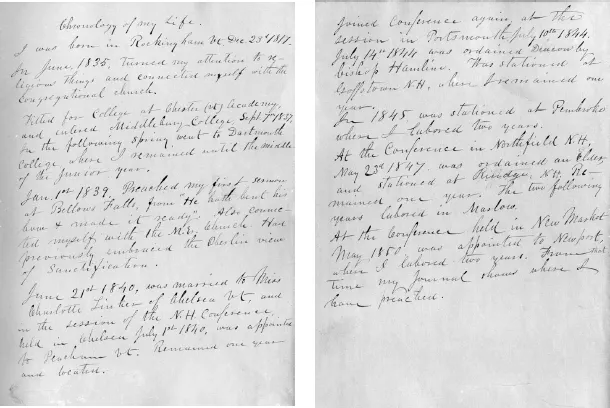 Chronology of my Life.
I was born in Rockingham Vt. Dec 23d 1817.
In June, 1835, turned my attention to re-
ligious things and connected myself with the
Congregational church.
Fitted for College at Chester (Vt) Academy,
and entered Middlebury College Sept 1837,
on the following Spring went to Dartmouth
College, where I remained until the middle
of the junior year.
Jan. 1st 1839. Preached my first sermon
at Bellows Falls, from He hath bent his
bow & made it ready. Also connec-
ted myself with the M.E. Church. Had
previously embraced the Oberlin view
of Sanctification.
June 21st 1840, was married to Miss
Charlotte of Chelsea Vt, and
on the session of the N.H. Conference,
held in Chelsea July 1st 1840, was appointed
to Peacham Vt. Remained one year
and located.
Joined Conference again, at the
session in Portsmouth July 10th 1844.
July 14th 1844 was ordained Deacon by
bishop Hamline. Was stationed at
Goffstown N.H, where I remained one
year.
In 1845, was stationed at Pembroke
where I labored two years.
At the Conference in Northfield N.H,
May 23d 1847 was ordained an Elder
and stationed at Rindge, N.H. Re-
mained one year. The two following
years labored in Marlow.
At the Conference held in New Market
May 1850 was appointed to Newport,
where I labored two years. From that
time my Journal shows where I
have preached.